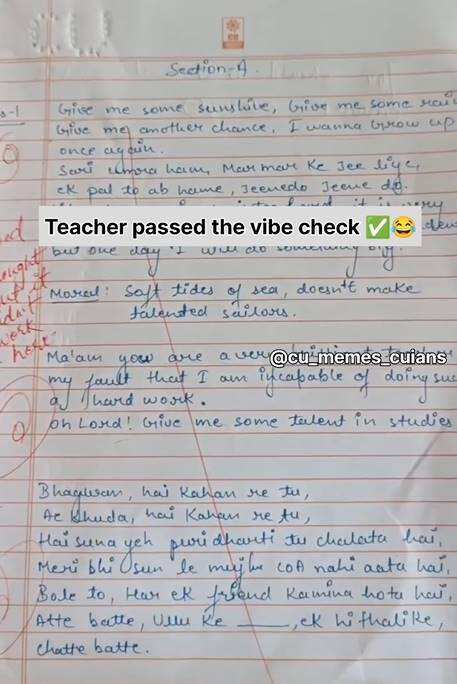 CU
Section-A.
s-1 Give me some sunshine, Give me some rain
Give me another chance, I wanna Grow up
once again.
Sari umra ham, Mar mar ke Jee liye,
ek pal to ab hame, Jeenedo Jeene do.
it is very
Teacher passed the vibe check ✅😂
but one day I will do something big.
Moral: Soft tides of sea, doesn't make
talented sailors.
Ma'am you are a very brilliant teacher
@cu_memes_cuians
my fault that I am incapable of doing suc
a hard work.
Oh Lord! Give me some talent in studies
Bhagwan, hai Kahan re tu,
Ae khuda, hai Kahan re tu,
Hai suna yeh puri dharti tu chalata hai,
Meri bhi sun le mujhe COA nahi aata hai,
Bole to, Har ek friend Kamina hota hai,
Atte batte, Ullu ke ____, ek hi thali ke,
chatte batte.
0
0
work